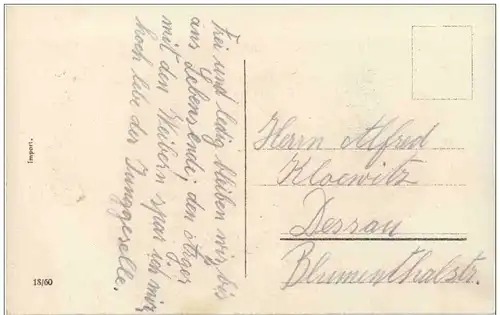 Frei und ledig bleiben wir bis
ans Lebensende; den Ärger
mit den Weibern spar ich mir
hoch lebe der Junggeselle.
Herrn Alfred
Kloewitz
Dessau
Blumenthalstr.
Import.
18/60